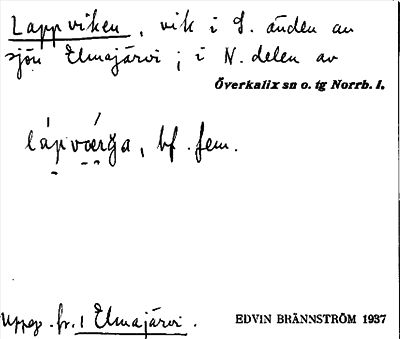 Lappviken, vik i S. änden av
sjön Elmajärvi; i N. delen av
Överkalix sn o. tg Norrb. l.
bf. fem.
Uppg. fr. Elmajärvi.
EDVIN BRÄNNSTRÖM 1937